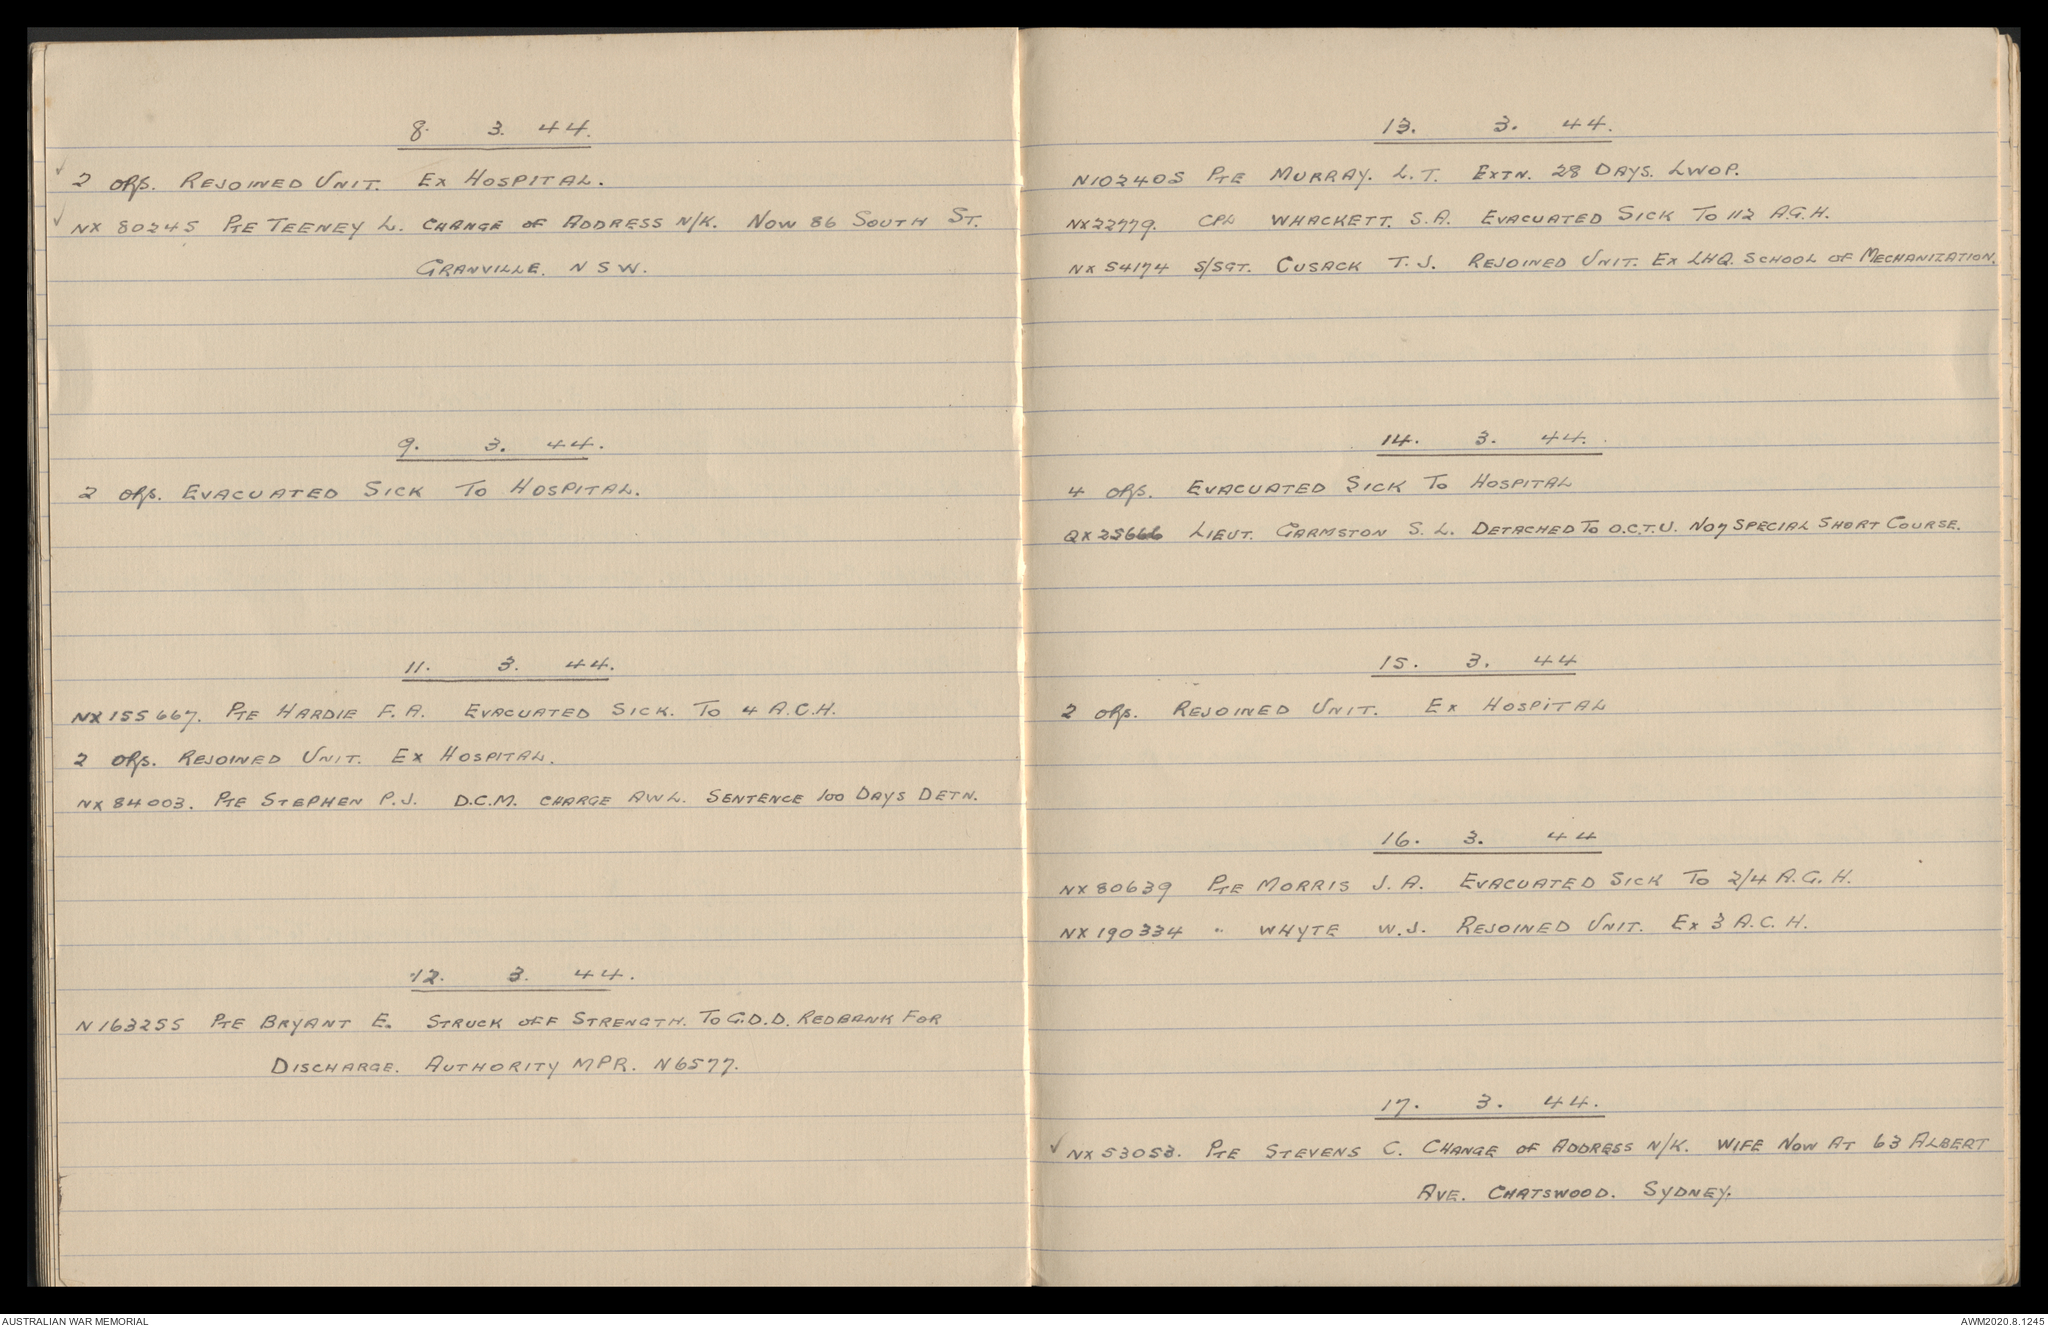 8. 3. 44.
2 ORs. REJOINED UNIT. EX HOSPITAL.
NX 80245 PTE TEENEY L. CHANGE OF ADDRESS N/K. NOW 86 SOUTH ST.
GRANVILLE. N S W.
9. 3. 44.
2 ORs. EVACUATED SICK TO HOSPITAL.
11. 3. 44.
NX 155667. PTE HARDIE F. A. EVACUATED SICK. TO 4 A.C.H.
2 ORs. REJOINED UNIT. EX HOSPITAL.
NX 84003. PTE STEPHEN P.J. D.C.M. CHARGE AWL. SENTENCE 100 DAYS DETN.
12. 3. 44.
N163255 PTE BRYANT E. STRUCK OFF STRENGTH. TO G.D.D. REDBANK FOR
DISCHARGE. AUTHORITY MPR. N6577.
13. 3. 44.
N102405 PTE MURRAY. L.T. EXTN. 28 DAYS. LWOP.
NX22779. CPL WHACKETT. S.A. EVACUATED SICK TO 112 A.G.H.
NX 54174 S/SGT. CUSACK T.J. REJOINED UNIT. EX LHQ. SCHOOL OF MECHANIZATION.
14. 3. 44.
4 ORs. EVACUATED SICK TO HOSPITAL
QX 25666 LIEUT. GARMSTON S. L. DETACHED TO O.C.T.U. NO7 SPECIAL SHORT COURSE.
15. 3. 44
2 ORs. REJOINED UNIT. EX HOSPITAL
16. 3. 44
NX 80639 PTE MORRIS J. A. EVACUATED SICK TO 2/4 A.G.H.
NX 190334 " WHYTE W.J. REJOINED UNIT. EX 3 A.C.H.
17. 3. 44.
NX 53053. PTE STEVENS C. CHANGE OF ADDRESS N/K. WIFE NOW AT 63 ALBERT
AVE. CHATSWOOD. SYDNEY.
AUSTRALIAN WAR MEMORIAL
AWM2020.8.1245